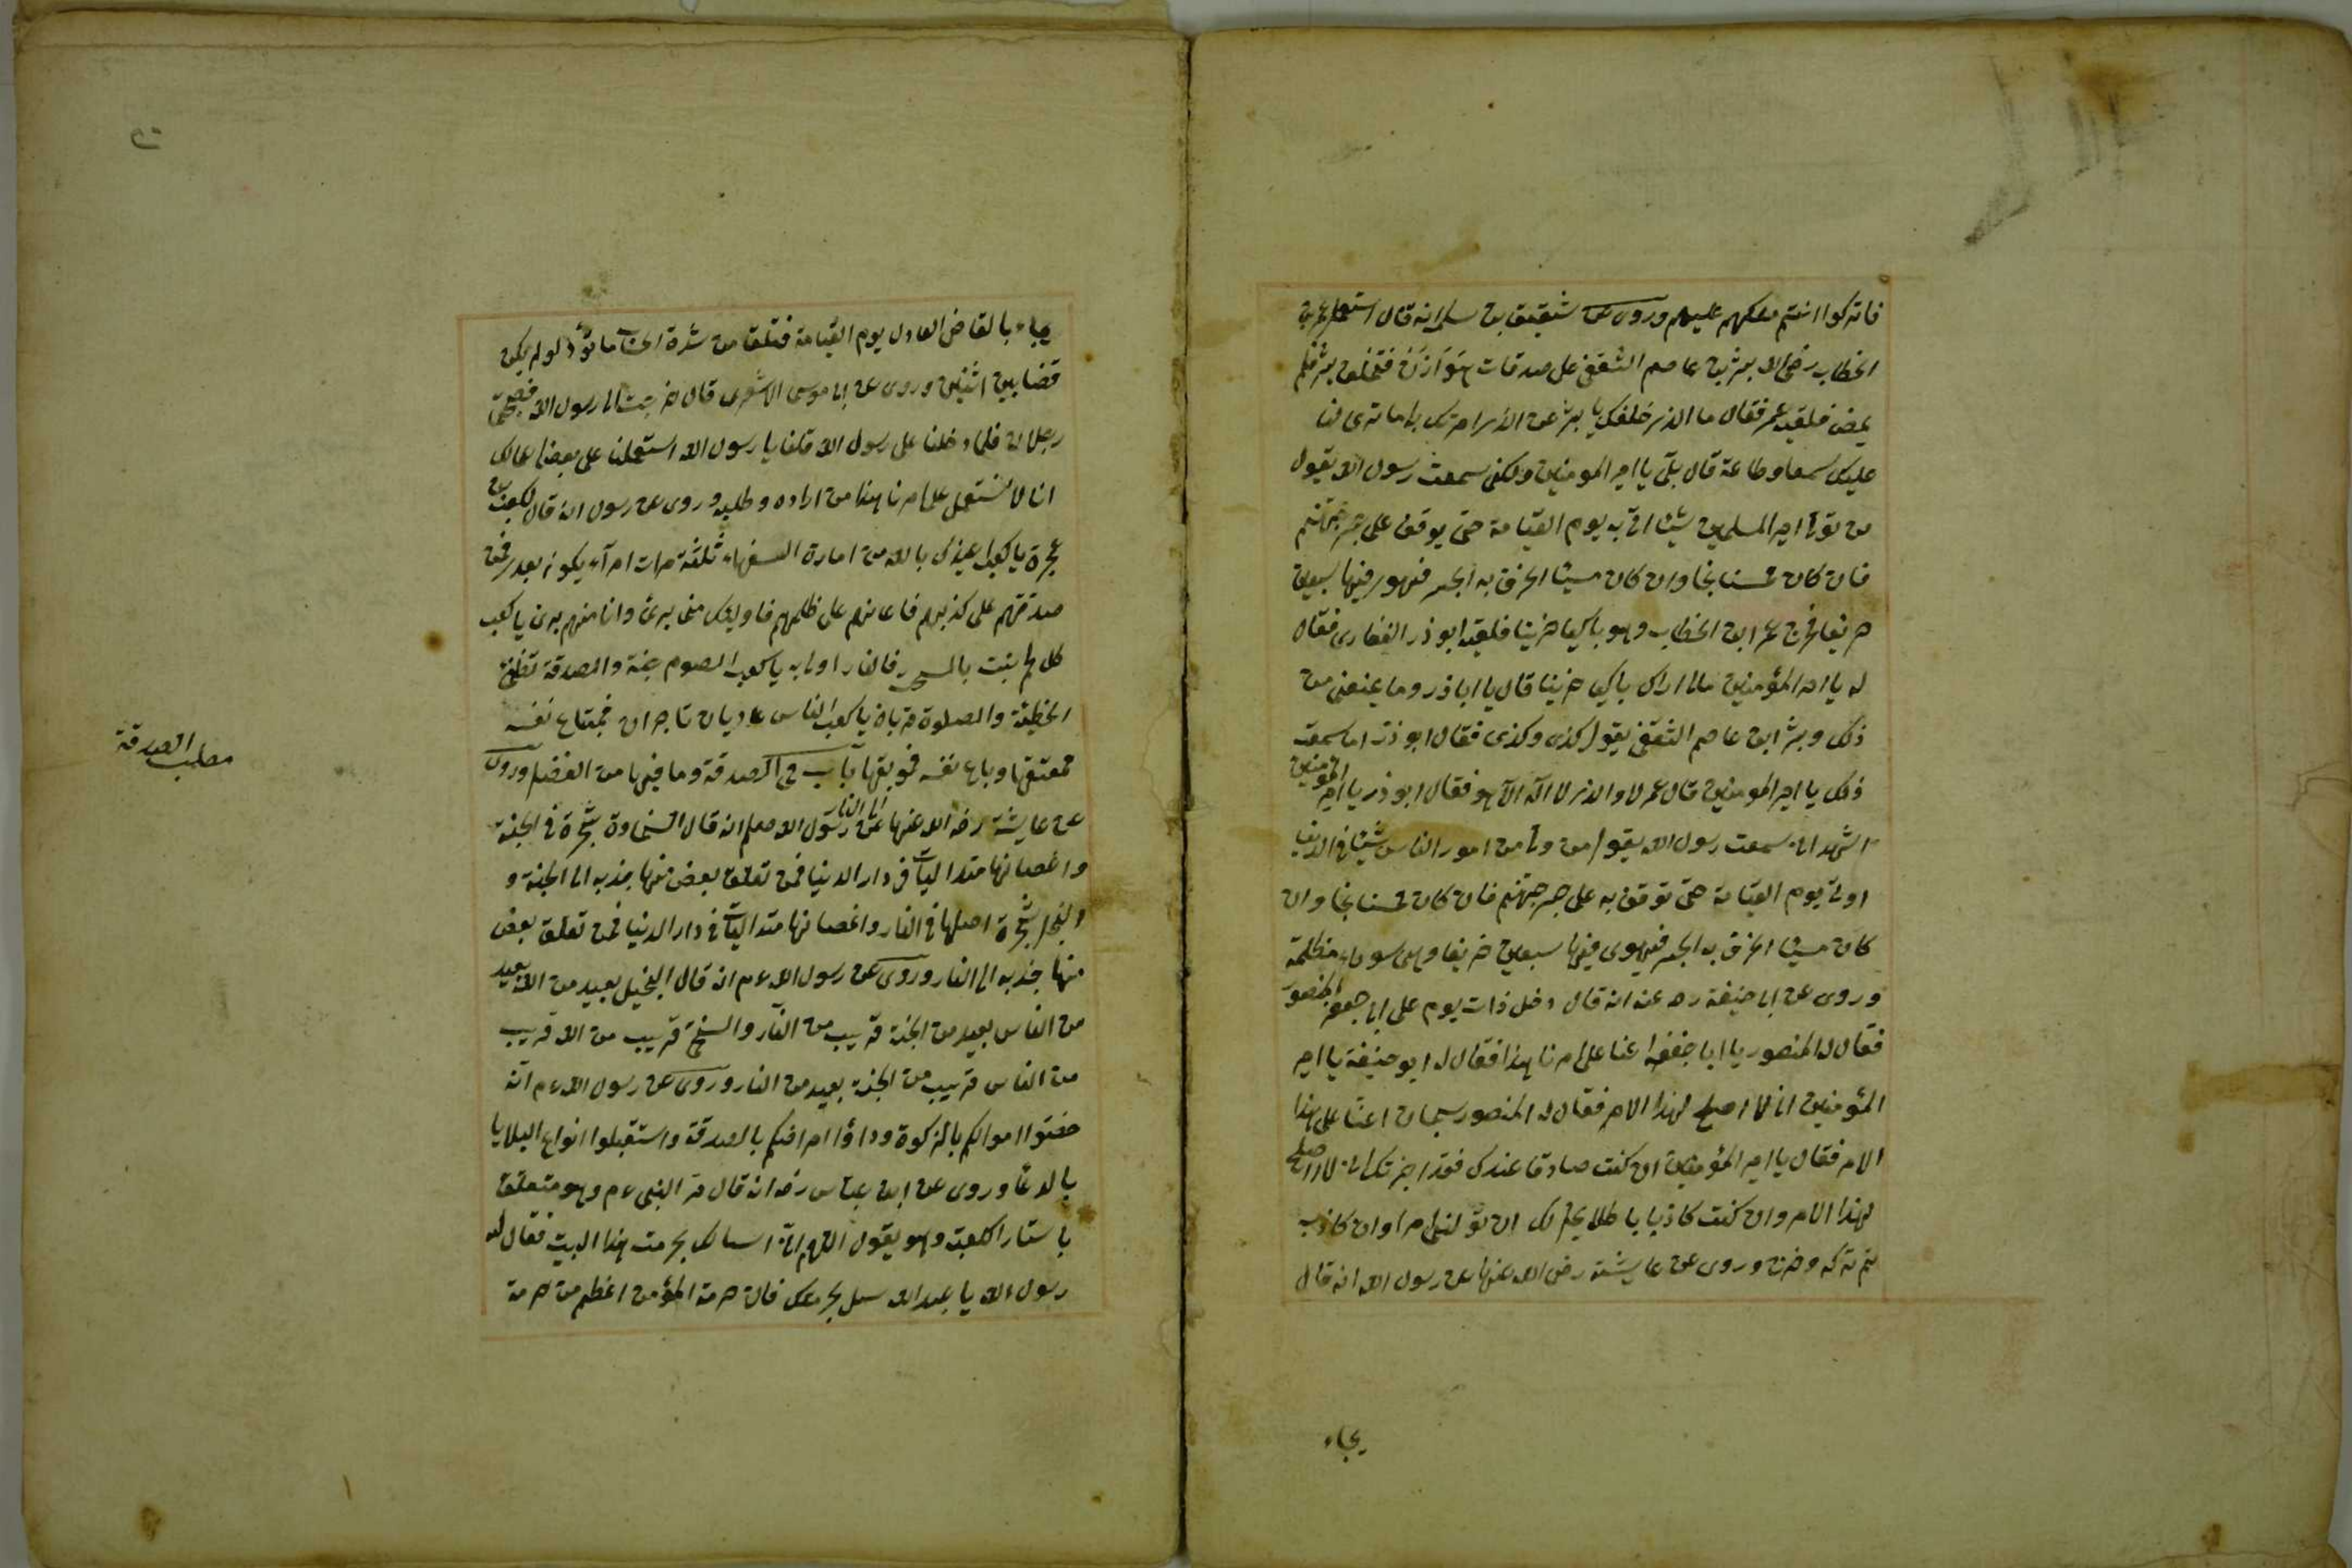 فاتركوا انتم ملكهم عليهم وروى عن شقيق بن سلمة انه قال استعمل عمر بن
الخطاب رضى الله بشر بن عاصم الثقفى على صدقات هَوَازَنَ فتخلف بشر فلم
يمض فلقيه عمر فقال ما الذى خلفك يا بشر عن الذى امرتك به اما ترى لنا
عليك سمعا وطاعة قال بلى يا امير المومنين ولكنى سمعت رسول الله يقول
من تولى امر المسلمين شيئا اتى به يوم القيامة حتى يوقف على جسر جهنم
فان كان محسنا نجا وان كان مسيئا انخرق به الجسر فيهوى فيها سبعين
خريفا فخرج عمر ابن الخطاب وهو باكيا حزينا فلقيه ابو ذر الغفارى فقال
له يا امير المؤمنين مالى اراك باكيا حزينا قال يا ابا ذر وما يمنعنى من
ذلك وبشر ابن عاصم الثقفى يقول كذى وكذى فقال ابو ذر اما سمعت
ذلك يا امير المومنين قال عمر لا والذى لا اله الا هو فقال ابو ذر يا امير المومنين
اشهد انى سمعت رسول الله يقول من ولى من امور الناس شيئا فى الدنيا
اوتى يوم القيامة حتى توقف به على جسر جهنم فان كان محسنا نجا وان
كان مسيئا انخرق به الجسر فيهوى فيها سبعين خريفا وهى سوداء مظلمة
وروى عن ابى حنيفة رح عنه انه قال دخل ذات يوم على ابى جعفر المنصور
فقال له المنصور يا ابا حنيفة اعنا على امرنا هذا فقال له ابو حنيفة يا امير
المؤمنين انى لا اصلح لهذا الامر فقال له المنصور سبحان اعنا على هذا
الامر فقال يا امير المؤمنين ان كنت صادقا عندك فقد اخبرتك انى لا اصلح
لهذا الامر وان كنت كاذبا با طلا يحل لك ان تولنى امرا وان كاذب
ثم تركه وخرج وروى عن عايشة رضى الله عنها عن رسول الله انه قال
يجاء
يجاء بالقاضى العادل يوم القيامة فتلقا من شدة الحساب ما تود لو لم يكن
قضا بين اثنين وروى عن ابى موسى الاشعرى قال خرجت الى رسول الله فصحبنى
رجلان فلما دخلنا على رسول الله قلنا يا رسول الله استعملنا على بعض اعمالك
انا لا نستعمل على امرنا هذا من اراده وطلبه وروى عن رسول الله قال لكعب بن
عجرة يا كعب اعيذك بالله من امارة السفهاء ثلثة مرات امرآء يكون بعدى فمن
صدقهم على كذبهم فاعانهم على ظلمهم فاوليك منى برئ وانا منهم برئ يا كعب
كل لحم ينبت بالسحت فالنار اولى به يا كعب الصوم جنة والصدقة تطفئ
الخطيئة والصلوة قربان يا كعب الناس عاديان تاجران فمبتاع نفسه
فمعتقها وباع نفسه فموبقها باب فى الصدقة وما فيها من الفضل وروى
مطلب الصدقة
عن عايشة رضى الله عنها عن رسول الله صلعم انه قال السخاوة شجرة فى الجنة
الى النار
واغصانها متداليات فى دار الدنيا فمن تعلق بعض منها جذبه الى الجنة و
البخل شجرة اصلها فى النار واغصانها متداليات فى دار الدنيا فمن تعلق بعض
منها جذبه الى النار وروى عن رسول الله ءم انه قال البخيل بعيد من الله بعيد
من الناس بعيد من الجنة قريب من النار والسخى قريب من الله قريب
من الناس قريب من الجنة بعيد من النار وروى عن رسول الله ءم انه
حصنوا اموالكم بالزكوة وداؤا امراضكم بالصدقة واستقبلوا انواع البلايا
بالدعا وروى عن ابن عباس رضى انه قال مر النبى ءم وهو متعلق
باستار الكعبة وهو يقول اللهم انى اسالك بحرمت هذا البيت فقال له
رسول الله يا عبد الله سل بحرمتك فان حرمة المؤمن اعظم من حرمة